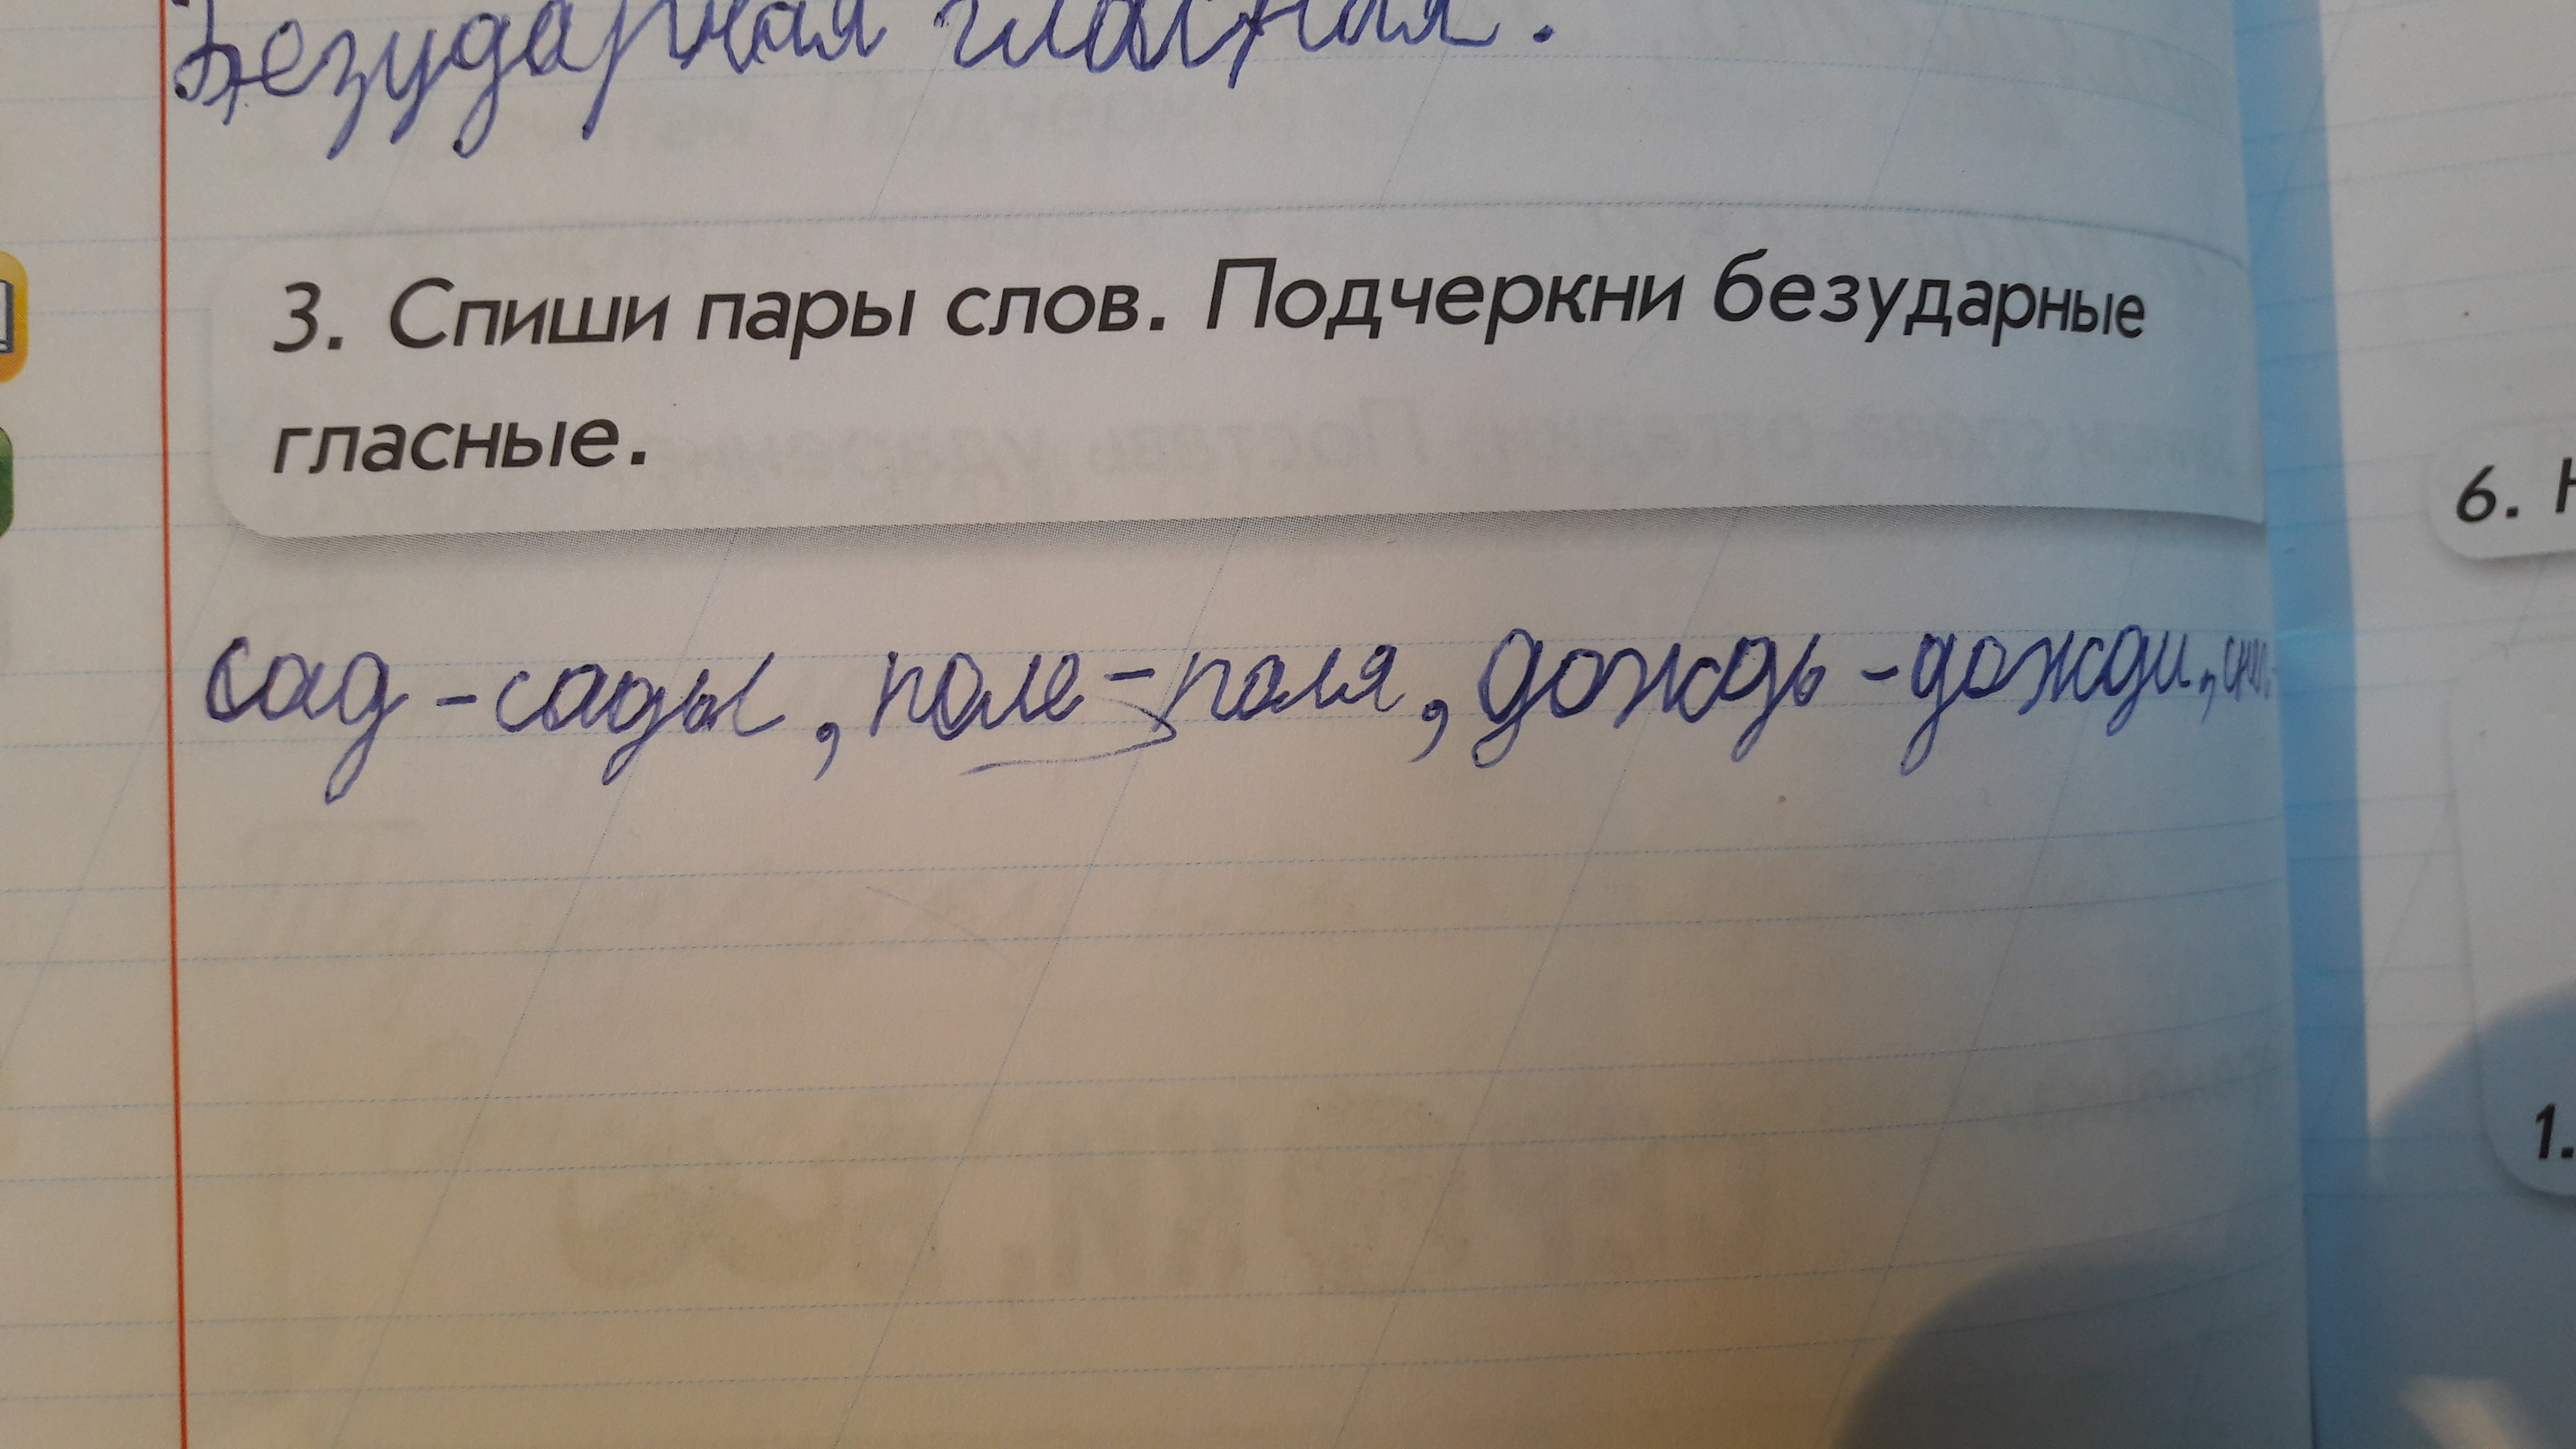 Безударная гласная.
3. Спиши пары слов. Подчеркни безударные
гласные.
6. Н
сад - сады, поле - поля, дождь - дожди,
1.